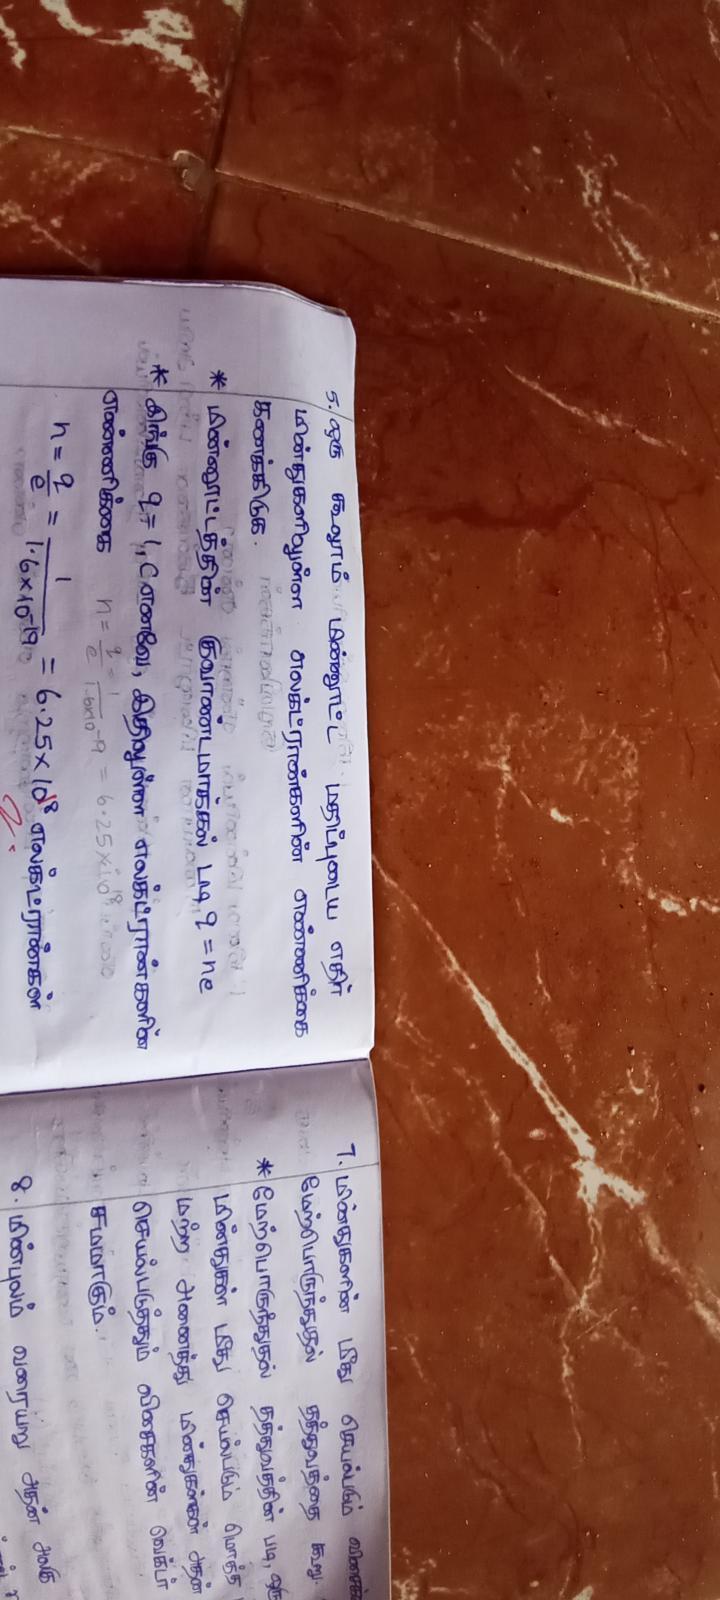 5. ஒரு கூலூம் மின்னூட்ட மதிப்புடைய எதிர்
மின்துகளிலுள்ள எலக்ட்ரான்களின் எண்ணிக்கை
கணக்கிடுக.
* மின்னூட்டத்தின் குவாண்டமாக்கல் படி q = ne
* இங்கு q = 1C எனவே, இதிலுள்ள எலக்ட்ரான்களின்
எண்ணிக்கை
n = q/e = 1/1.6×10⁻¹⁹ = 6.25×10¹⁸ எலக்ட்ரான்கள்
7. மின்துகளின் மீது செயல்படும்
மேற்பொருந்துதல் தத்துவத்தை கூறு.
* மேற்பொருந்துதல் தத்துவத்தின் படி, ஒரு
மின்துகள் மீது செயல்படும் மொத்த
மற்ற அனைத்து மின்துகள்கள் அதன்
செயல்படுத்தும் விசைகளின் வெக்டர்
சமமாகும்.
8. மின்புலம் வரையறு அதன் அலகு